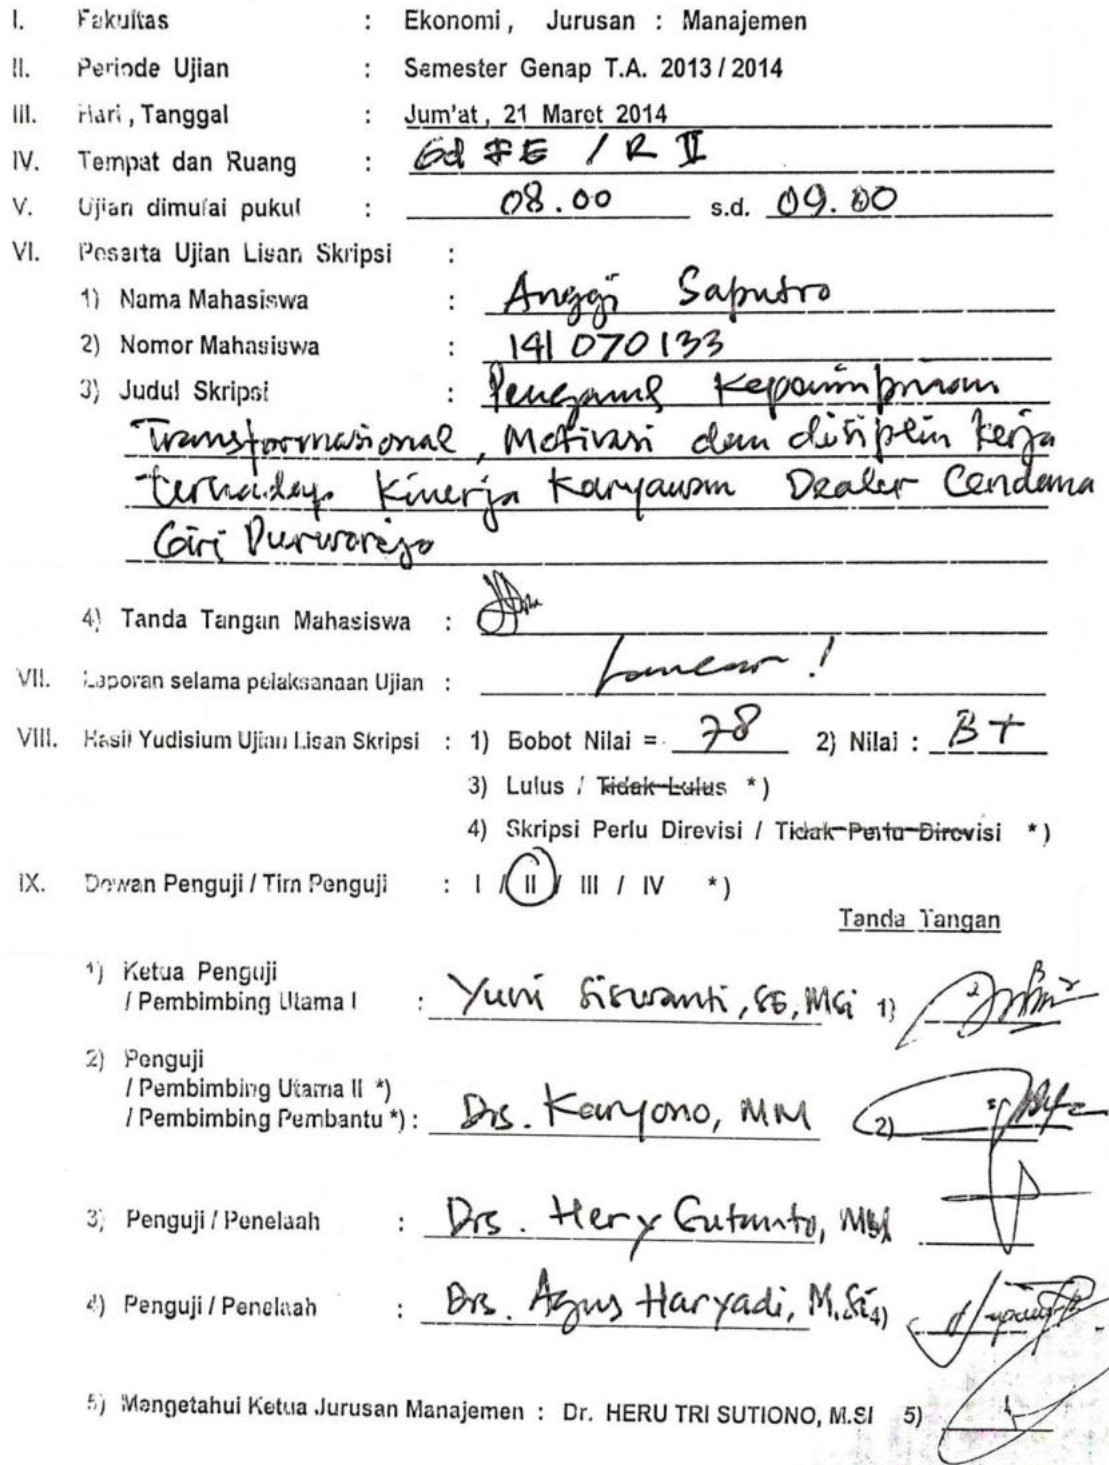 I. Fakultas : Ekonomi, Jurusan : Manajemen
II. Periode Ujian : Semester Genap T.A. 2013 / 2014
III. Hari, Tanggal : Jum'at, 21 Maret 2014
IV. Tempat dan Ruang : Gd FE / R II
V. Ujian dimulai pukul : 08.00 s.d. 09.00
VI. Peserta Ujian Lisan Skripsi :
1) Nama Mahasiswa : Anggi Saputro
2) Nomor Mahasiswa : 141070133
3) Judul Skripsi : Pengaruh Kepemimpinan
Transformasional, Motivasi dan disiplin kerja
terhadap Kinerja Karyawan Dealer Cendana
Giri Purworejo
4) Tanda Tangan Mahasiswa :
VII. Laporan selama pelaksanaan Ujian : Lancar !
VIII. Hasil Yudisium Ujian Lisan Skripsi : 1) Bobot Nilai = 78 2) Nilai : B+
3) Lulus / Tidak Lulus *)
4) Skripsi Perlu Direvisi / Tidak Perlu Direvisi *)
IX. Dewan Penguji / Tim Penguji : I / II / III / IV *)
Tanda Tangan
1) Ketua Penguji
/ Pembimbing Utama I : Yuni Siswanti, SE, MSi 1)
2) Penguji
/ Pembimbing Utama II *)
/ Pembimbing Pembantu *) : Drs. Karyono, MM 2)
3) Penguji / Penelaah : Drs. Hery Sutanto,
4) Penguji / Penelaah : Drs. Agus Haryadi, M.Si 4)
5) Mengetahui Ketua Jurusan Manajemen : Dr. HERU TRI SUTIONO, M.SI 5)